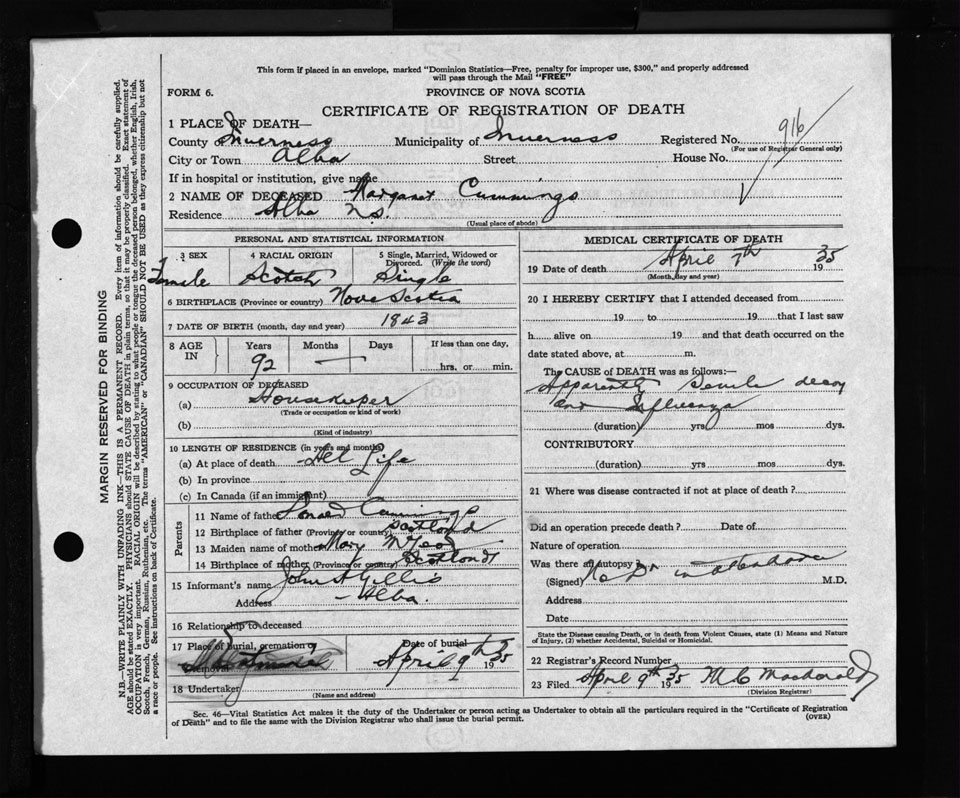 This form if placed in an envelope, marked "Dominion Statistics—Free, penalty for improper use, $300," and properly addressed
will pass through the Mail "FREE"
FORM 6.
PROVINCE OF NOVA SCOTIA
CERTIFICATE OF REGISTRATION OF DEATH
1 PLACE OF DEATH—
County Inverness Municipality of Inverness Registered No. 916
(For use of Registrar General only)
City or Town Alba Street House No.
If in hospital or institution, give name
2 NAME OF DECEASED Margaret Cummings
Residence Alba N.S.
(Usual place of abode)
PERSONAL AND STATISTICAL INFORMATION
3 SEX 4 RACIAL ORIGIN 5 Single, Married, Widowed or Divorced. (Write the word)
Female Scotch Single
6 BIRTHPLACE (Province or country) Nova Scotia
7 DATE OF BIRTH (month, day and year) 1843
8 AGE IN Years Months Days If less than one day,
92 — hrs. or min.
9 OCCUPATION OF DECEASED
(a) Housekeeper
(Trade or occupation or kind of work)
(b)
(Kind of industry)
10 LENGTH OF RESIDENCE (in years and months)
(a) At place of death Life
(b) In province
(c) In Canada (if an immigrant)
Parents
11 Name of father Cummings
12 Birthplace of father (Province or country) Scotland
13 Maiden name of mother Mary
14 Birthplace of mother (Province or country) Scotland
15 Informant's name John A Gillis
Address Alba.
16 Relationship to deceased
17 Place of burial, cremation or
Date of burial
April 9th 1935
18 Undertaker
(Name and address)
MEDICAL CERTIFICATE OF DEATH
19 Date of death April 7th 1935
(Month, day and year)
20 I HEREBY CERTIFY that I attended deceased from
19 to 19 that I last saw
h alive on 19 and that death occurred on the
date stated above, at m.
The CAUSE of DEATH was as follows:—
Apparently Senile decay
and Influenza
(duration) yrs mos dys.
CONTRIBUTORY
(duration) yrs mos dys.
21 Where was disease contracted if not at place of death?
Did an operation precede death? Date of
Nature of operation
Was there an autopsy
(Signed) No Dr in attendance M.D.
Address
Date
State the Disease causing Death, or in death from Violent Causes, state (1) Means and Nature
of Injury, (2) whether Accidental, Suicidal or Homicidal.
22 Registrar's Record Number
23 Filed April 9th 1935 M C Macdonald
(Division Registrar)
Sec. 46—Vital Statistics Act makes it the duty of the Undertaker or person acting as Undertaker to obtain all the particulars required in the "Certificate of Registration
of Death" and to file the same with the Division Registrar who shall issue the burial permit.
(OVER)
MARGIN RESERVED FOR BINDING
N.B.—WRITE PLAINLY WITH UNFADING INK—THIS IS A PERMANENT RECORD. Every item of information should be carefully supplied.
AGE should be stated EXACTLY. PHYSICIANS should STATE CAUSE OF DEATH in plain terms, so that it may be properly classified. Exact statement of
OCCUPATION is very important. RACIAL ORIGIN will be described by stating to what people or tongue the deceased person belonged, whether English, Irish,
Scotch, French, German, Russian, Ruthenian, etc. The terms "AMERICAN" or "CANADIAN" SHOULD NOT BE USED as they express citizenship but not
a race or people. See Instructions on back of Certificate.